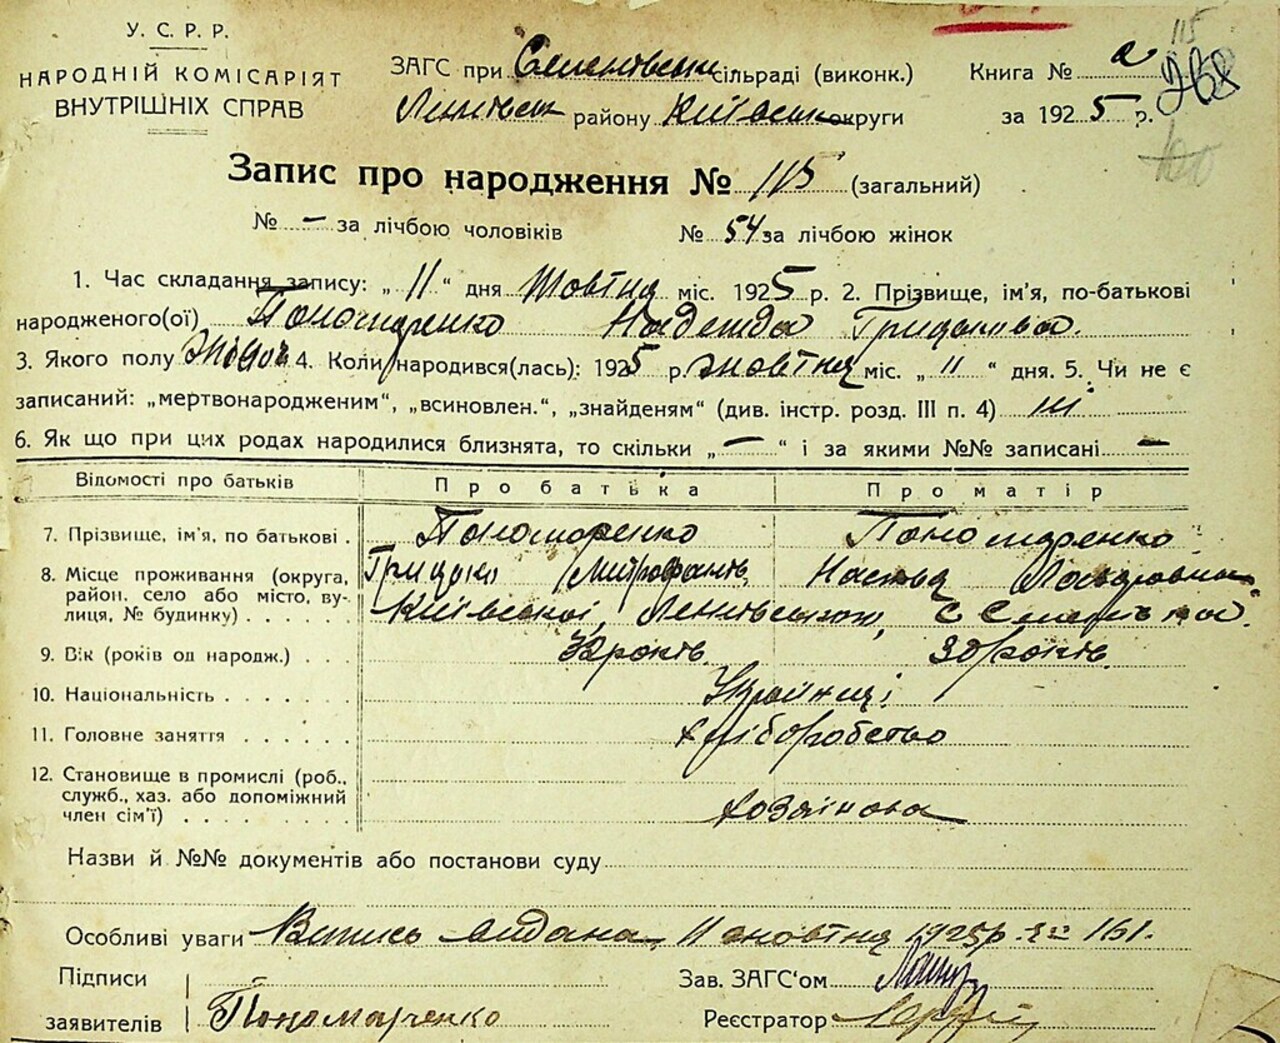 У. С. Р. Р.
НАРОДНІЙ КОМІСАРІЯТ
ВНУТРІШНІХ СПРАВ
ЗАГС при сільраді (виконк.)
району Київськ округи
Книга № 2
за 1925 р.
115
Запис про народження № 115 (загальний)
№ — за лічбою чоловіків № 54 за лічбою жінок
1. Час складання запису: „ 11 “ дня Жовтня міс. 1925 р. 2. Прізвище, ім'я, по-батькові
народженого(ої) Пономаренко Надежда Грицькова.
3. Якого полу Жіноч 4. Коли народився(лась): 1925 р. жовтня міс. „ 11 “ дня. 5. Чи не є
записаний: „мертвонародженим“, „всиновлен.“, „знайденям“ (див. інстр. розд. III п. 4) ні
6. Як що при цих родах народилися близнята, то скільки „ — “ і за якими №№ записані —
Відомості про батьків Про батька Про матір
7. Прізвище, ім'я, по батькові . Пономаренко Пономаренко
Грицько Митрофанів. Настя Лазаровна
8. Місце проживання (округа,
район, село або місто, ву-
лиця, № будинку) . . . . . Київської,
9. Вік (років од народж.) . . . 32 років. 30 років.
10. Національність . . . . . . . Українці
11. Головне заняття . . . . . . хліборобство
12. Становище в промислі (роб.,
служб., хаз. або допоміжний
член сім'ї) . . . . . . . . . хозяінова
Назви й №№ документів або постанови суду
Особливі уваги Випись видана 11 жовтня 1925 р. за № 161.
Підписи Зав. ЗАГС'ом
заявителів Пономарченко Реєстратор